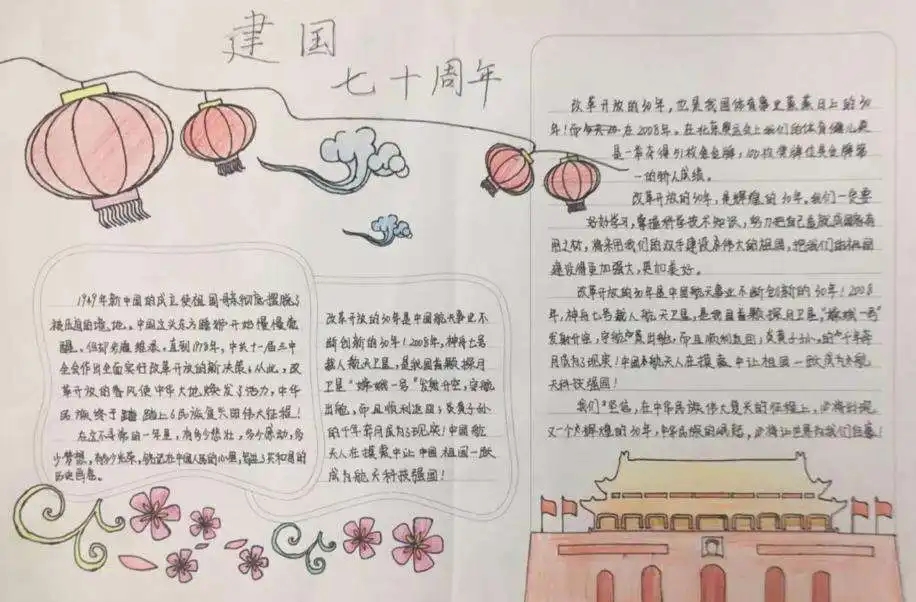 建国
七十周年
1949年新中国的成立使祖国母亲彻底摆脱了
被压迫的境地。中国这头东方睡狮开始慢慢觉
醒。但却步履维艰。直到1978年，中共十一届三中
全会作出全面实行改革开放的新决策。从此，改
革开放的春风使中华大地焕发了活力，中华
民族终于踏上了民族复兴的伟大征程！
在这不寻常的一年里，有多少悲壮，多少感动，多
少梦想，有多少光荣，铭记在中国人民的心里，写进了共和国的
历史画卷。
改革开放的30年是中国航天事业不
断创新的30年！2008年，神舟七号
载人航天卫星，是我国首颗探月
卫星“嫦娥一号”发射升空，穿舱
出舱，而且顺利返回了炎黄子孙
的千年奔月成为了现实！中国航
天人在摸索中让中国祖国一跃
成为航天科技强国！
改革开放的30年，也是我国体育事业蒸蒸日上的30
年！而今天在2008年。在北京奥运会上我们的体育健儿更
是一举夺得51枚金牌，100枚奖牌位居金牌第
一的骄人成绩。
改革开放的30年，是辉煌的30年。我们一定要
好好学习，掌握科学技术知识，努力把自己造就成国家有
用之材，将来用我们的双手建设着伟大的祖国，把我们的祖国
建设得更加强大，更加美好。
改革开放的30年是中国航天事业不断创新的30年！2008
年，神舟七号载人航天卫星，是我国首颗探月卫星，“嫦娥一号”
发射升空，穿舱出舱，而且顺利返回，炎黄子孙的千年奔
月成为了现实！中国航天人在摸索中让祖国一跃成为航
天科技强国！
我们坚信，在中华民族伟大复兴的征程上，必将迎来
又一个辉煌的30年，中华民族的崛起，必将让世界为我们自豪！